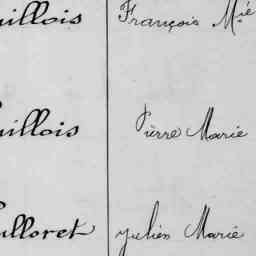 uillois François Mié
uillois Pierre Marie
ulloret Julien Marie